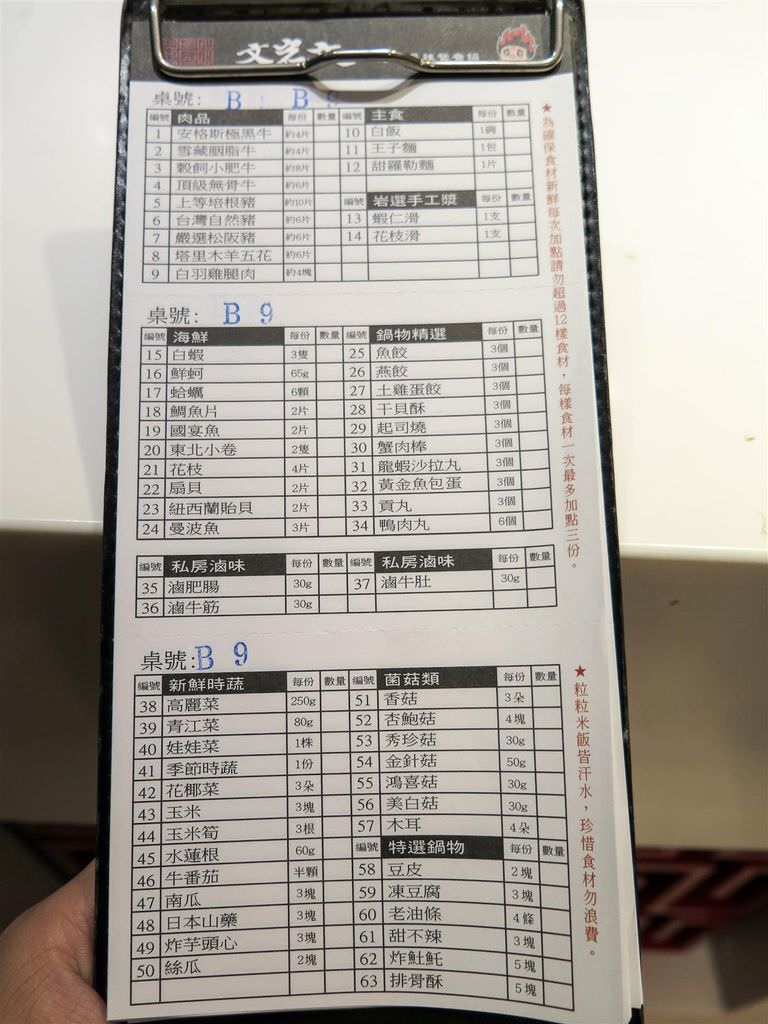 文岩
桌號: B B 9
編號 肉品 每份 數量 編號 主食 每份 數量
1 安格斯極黑牛 約4片 10 白飯 1碗
2 雪藏胭脂牛 約4片 11 王子麵 1包
3 穀飼小肥牛 約8片 12 甜羅勒麵 1片
4 頂級無骨牛 約6片
5 上等培根豬 約10片 編號 岩選手工漿 每份 數量
6 台灣自然豬 約6片 13 蝦仁滑 1支
7 嚴選松阪豬 約6片 14 花枝滑 1支
8 塔里木羊五花 約6片
9 白羽雞腿肉 約4塊
桌號: B 9
編號 海鮮 每份 數量 編號 鍋物精選 每份 數量
15 白蝦 3隻 25 魚餃 3個
16 鮮蚵 65g 26 燕餃 3個
17 蛤蠣 6顆 27 土雞蛋餃 3個
18 鯛魚片 2片 28 干貝酥 3個
19 國宴魚 2片 29 起司燒 3個
20 東北小卷 2隻 30 蟹肉棒 3個
21 花枝 4片 31 龍蝦沙拉丸 3個
22 扇貝 2片 32 黃金魚包蛋 3個
23 紐西蘭貽貝 2片 33 貢丸 3個
24 曼波魚 3片 34 鴨肉丸 6個
編號 私房滷味 每份 數量 編號 私房滷味 每份 數量
35 滷肥腸 30g 37 滷牛肚 30g
36 滷牛筋 30g
桌號: B 9
編號 新鮮時蔬 每份 數量 編號 菌菇類 每份 數量
38 高麗菜 250g 51 香菇 3朵
39 青江菜 80g 52 杏鮑菇 4塊
40 娃娃菜 1株 53 秀珍菇 30g
41 季節時蔬 1份 54 金針菇 50g
42 花椰菜 3朵 55 鴻喜菇 30g
43 玉米 3塊 56 美白菇 30g
44 玉米筍 3根 57 木耳 4朵
45 水蓮根 60g 編號 特選鍋物 每份 數量
46 牛番茄 半顆 58 豆皮 2塊
47 南瓜 3塊 59 凍豆腐 3塊
48 日本山藥 3塊 60 老油條 4條
49 炸芋頭心 3塊 61 甜不辣 3塊
50 絲瓜 2塊 62 炸魠魠 5塊
63 排骨酥 5塊
★為確保食材新鮮每次加點請勿超過12樣食材，每樣食材一次最多加點三份。
★粒粒米飯皆汗水，珍惜食材勿浪費。